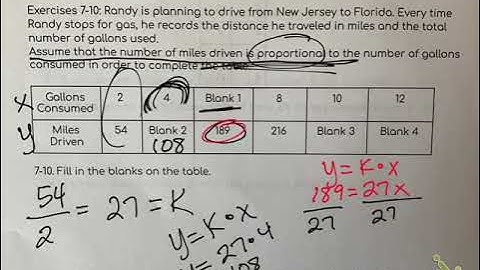 Exercises 7-10: Randy is planning to drive from New Jersey to Florida. Every time
Randy stops for gas, he records the distance he traveled in miles and the total
number of gallons used.
Assume that the number of miles driven is proportional to the number of gallons
consumed in order to complete the table.
X Gallons Consumed 2 4 Blank 1 8 10 12
y Miles Driven 54 Blank 2 189 216 Blank 3 Blank 4
108
7-10. Fill in the blanks on the table.
54/2 = 27 = K
y = K • X
y = 27 • 4
108
y = K • X
189 = 27x
27 27